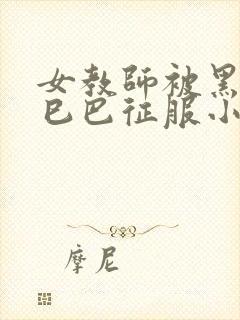 女教師被黑
巳巴征服小
摩尼